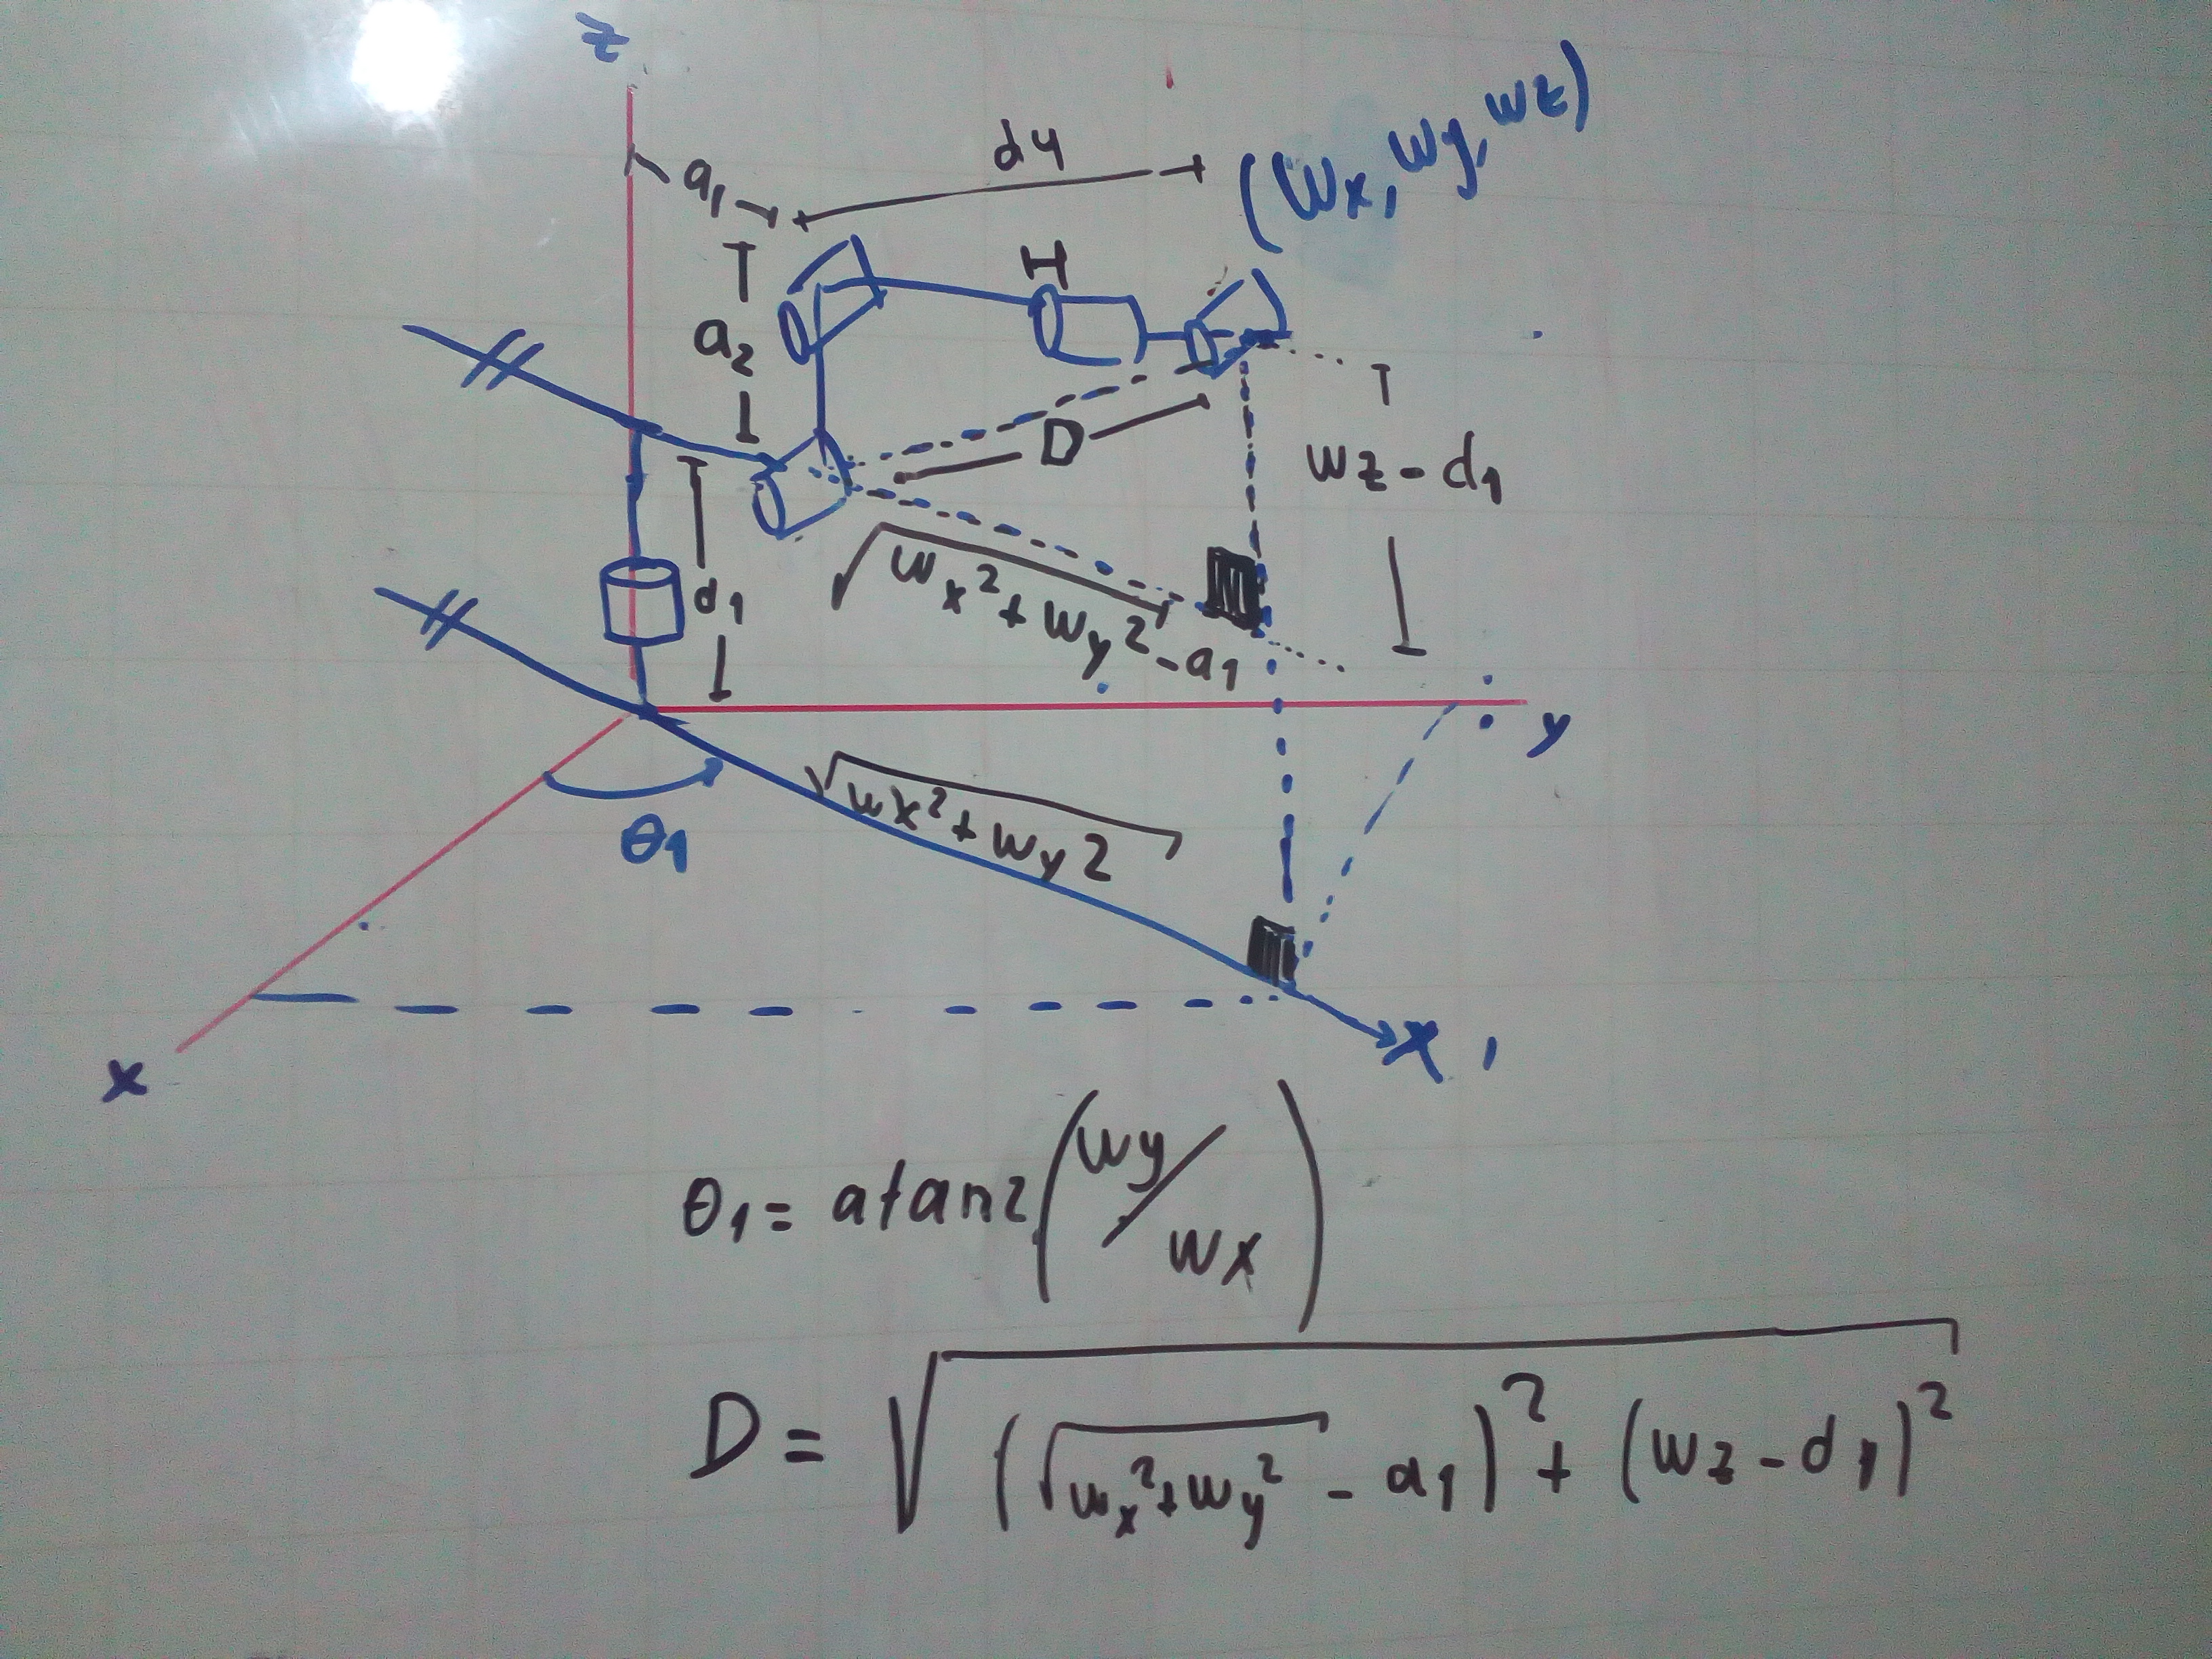 z
a₁
d4
(Wx, Wy, Wz)
a₂
H
D
Wz - d₁
d₁
√(Wx² + Wy²) - a₁
y
√(Wx² + Wy²)
θ₁
x
X₁
θ₁ = atan2(Wy/Wx)
D = √((√(Wx² + Wy²) - a₁)² + (Wz - d₁)²)